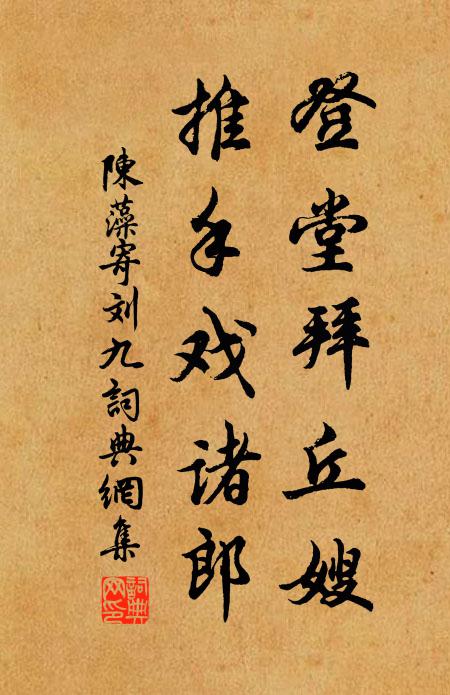 登堂拜丘嫂
推手戏诸郎
陳藻寄刘九詞典網集
詞典网印